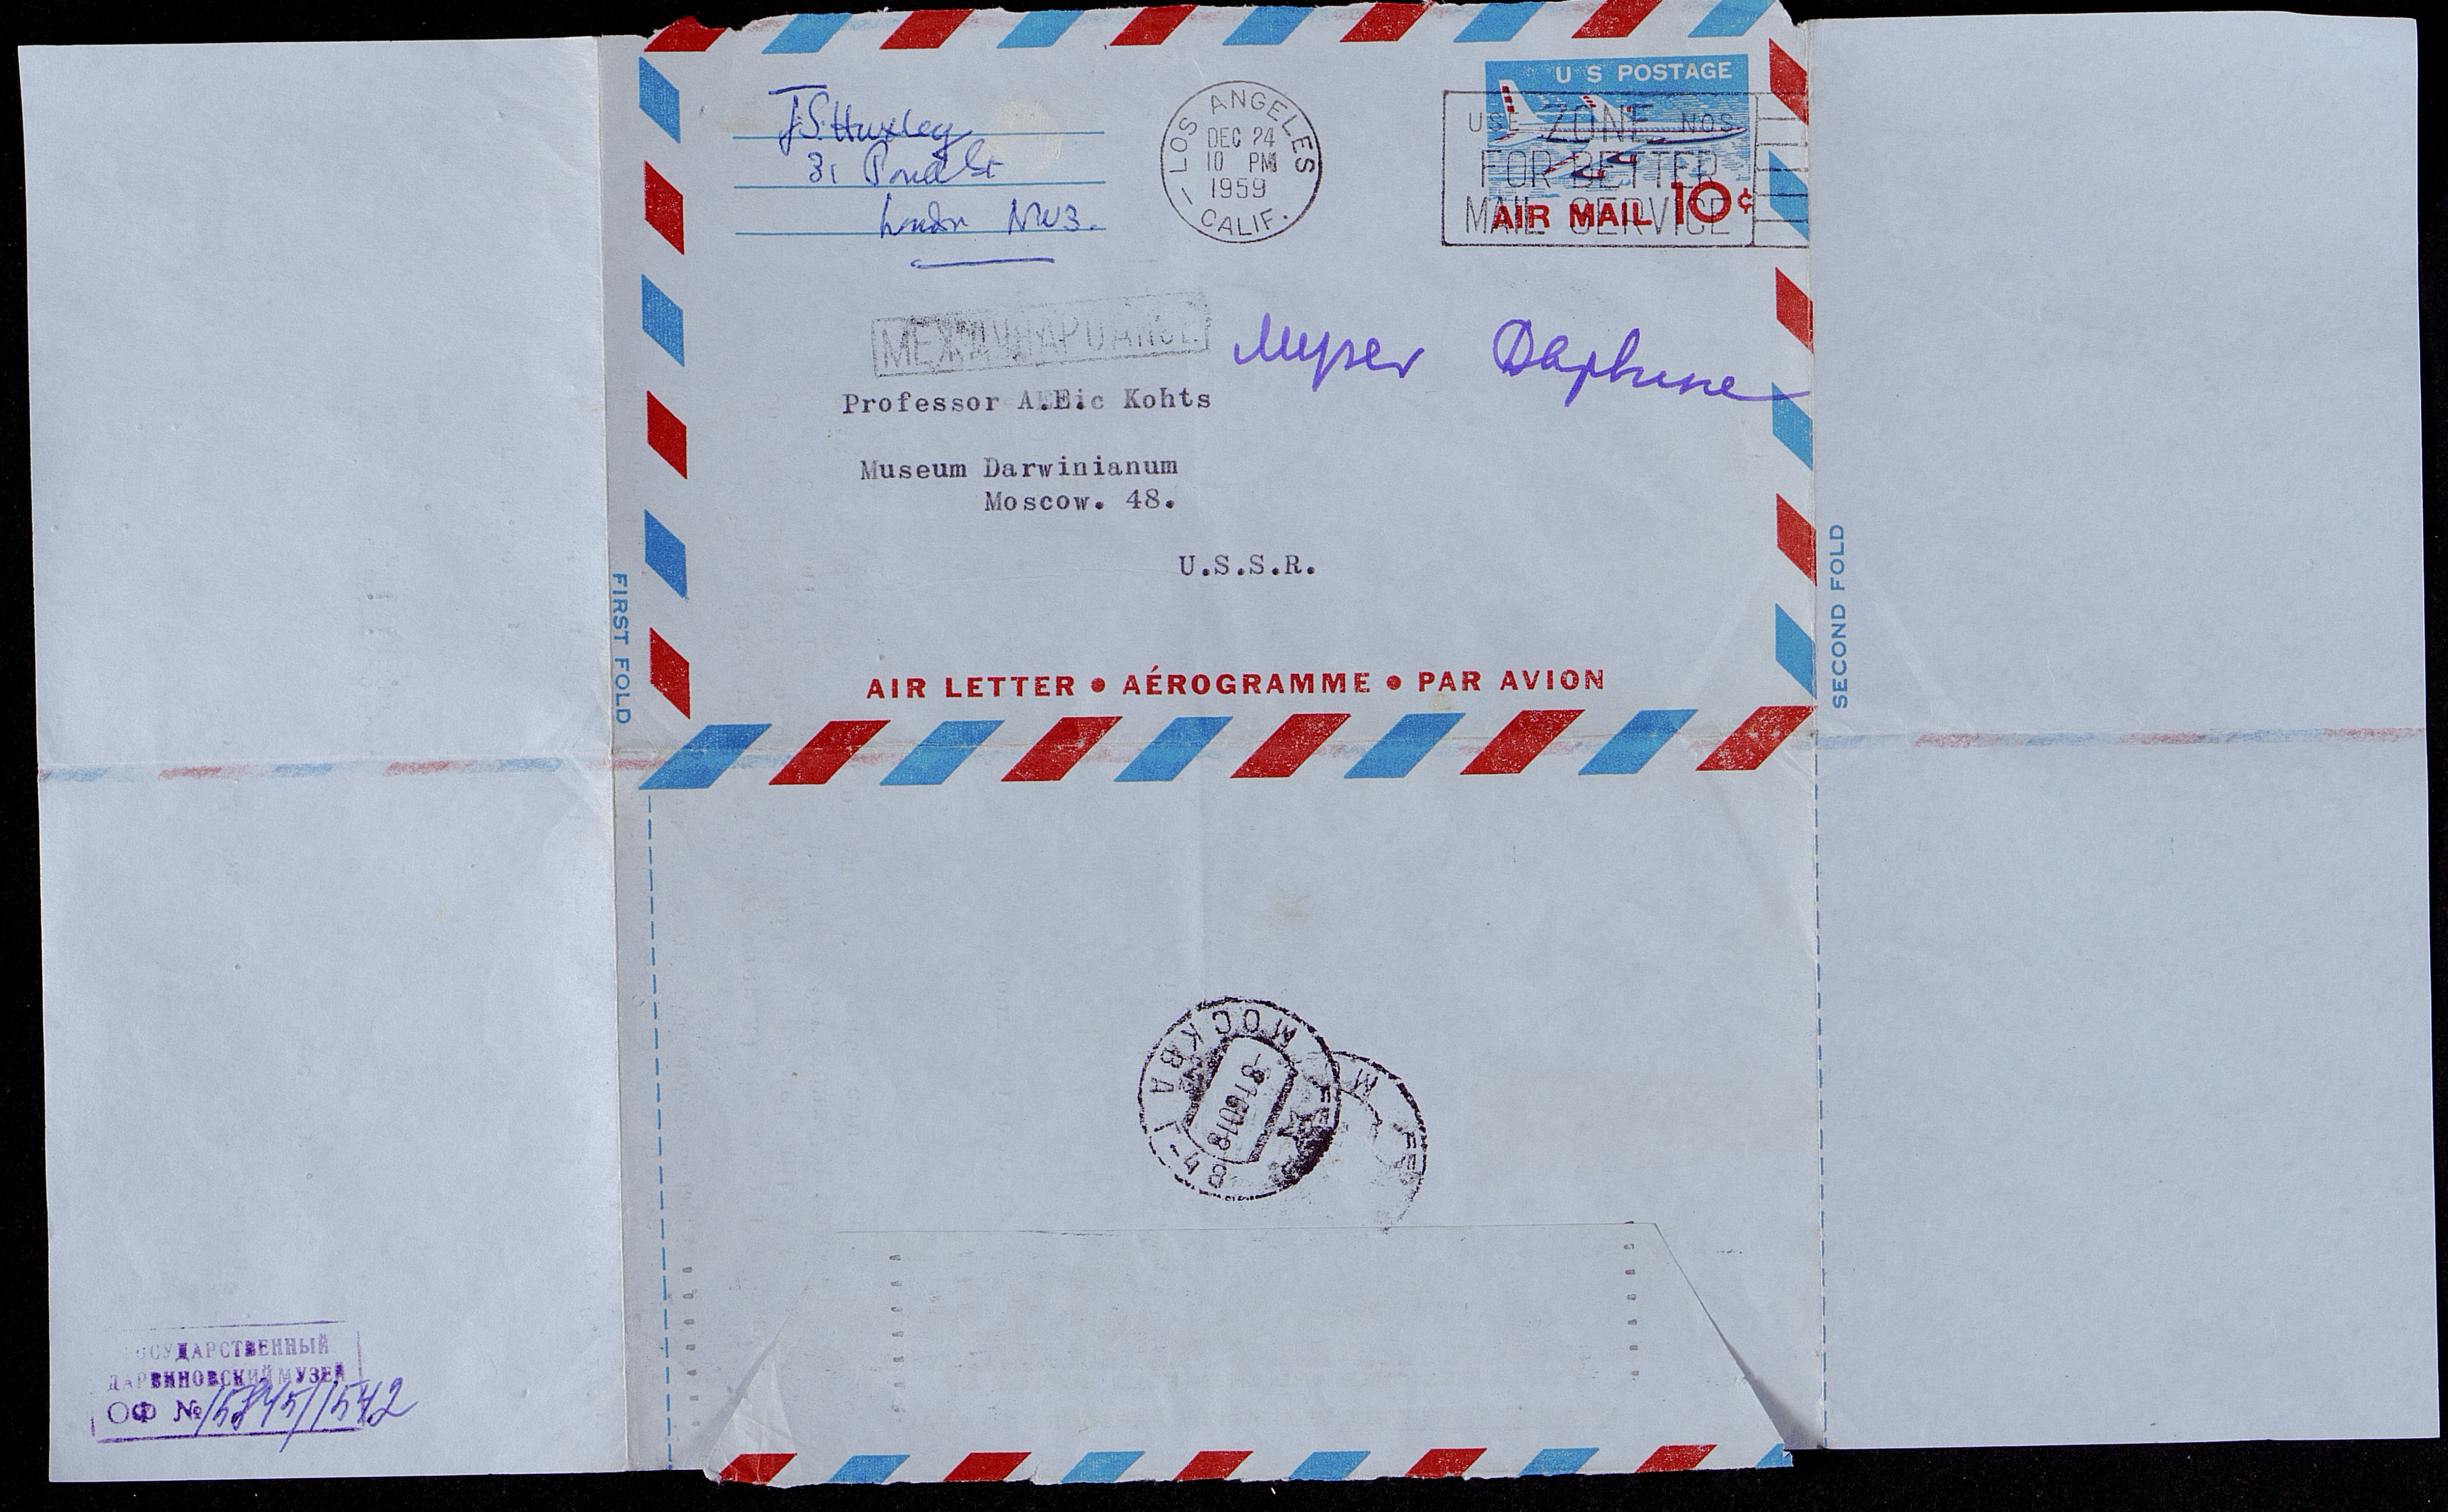 J.S. Huxley
31 Pond St
London NW3.
LOS ANGELES
DEC 24
10 PM
1959
CALIF.
U S POSTAGE
AIR MAIL 10¢
USE ZONE NOS.
FOR BETTER
MAIL SERVICE
Музей
Professor A.Eic Kohts
Museum Darwinianum
Moscow. 48.
U.S.S.R.
FIRST FOLD
SECOND FOLD
AIR LETTER • AÉROGRAMME • PAR AVION
МОСКВА Г-48
ОСУДАРСТВЕННЫЙ
ДАРВИНОВСКИЙ МУЗЕЙ
ОФ № 15845/1542